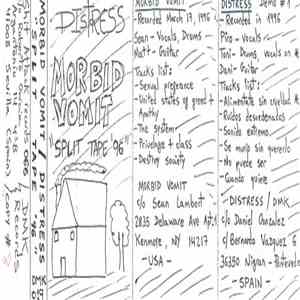 41008 Sevilla (SPAIN) copy #
MORBID VOMIT / DISTRESS
SPLIT TAPE '96 DMK
DISTRESS
MORBID
VOMIT
"SPLIT TAPE '96"
MORBID VOMIT
- Recorded March 17, 1996
Sean - Vocals, Drums
Matt - Guitar
Tracks list:
- Sexual preference
- United states of greed +
Apathy
- The System
- Privelege + class
- Destroy society
MORBID VOMIT
c/o Sean Lambert
2835 Delaware Ave Apt.
Kenmore, NY 14217
- USA -
DISTRESS Demo #1
- Recorded in 1996
Pino - Vocals
Toni - Drums, vocals on
Dani - Guitar
Tracks list:
- Alimentate sin crueldad
- Ruidos desordenados
- Sonido extremo
- Se murio sin quererlo
- No puede ser
- Cuando quiere
DISTRESS / DMK
c/o Daniel Gonzalez
c/ Bernardo Vazquez
36350 Nigran - Pontevedra
- SPAIN -